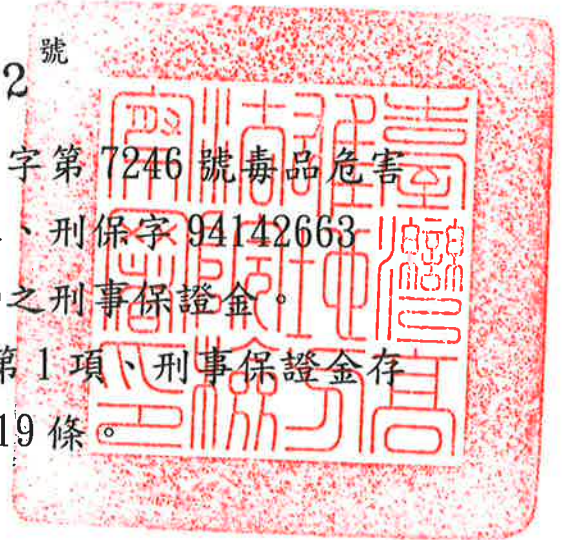 2 號
字第 7246 號毒品危害
、刑保字 94142663
之刑事保證金。
第 1 項、刑事保證金存
19 條。
臺灣高
雄地方
法院檢
察署印